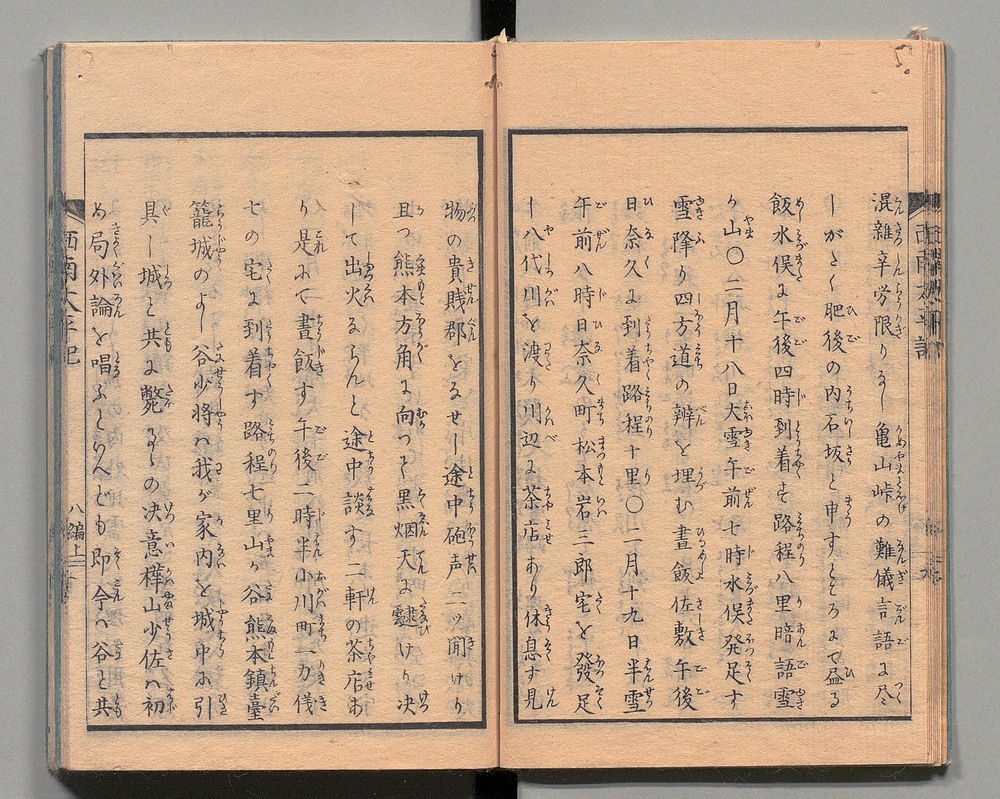 混雑辛労限りなし亀山峠の難儀言語に尽
しがたく肥後の内石坂と申すところにて昼
飯水俣に午後四時到着す路程八里暗語雪
り山〇二月十八日大雪午前七時水俣発足す
雪降り四方道の辨を埋む昼飯佐敷午後
日奈久に到着路程十里〇二月十九日半雪
午前八時日奈久町松本岩三郎宅を発足
し八代川を渡り川辺に茶店あり休息す見
物の貴賎郡をなせし途中砲声二ッ聞けり
且つ熊本方角に向つて黒烟天に靆けり决
して出火ならんと途中談す二軒の茶店あ
り是にて昼飯す午後二時半小川町一力
七の宅に到着す路程七里山ヶ谷熊本鎮臺
籠城のよし谷少将ハ我が家内を城中に引
具し城と共に斃るゝの决意樺山少佐ハ初
め局外論を唱ふといへども即今ハ谷と共
西南太平記
八編上